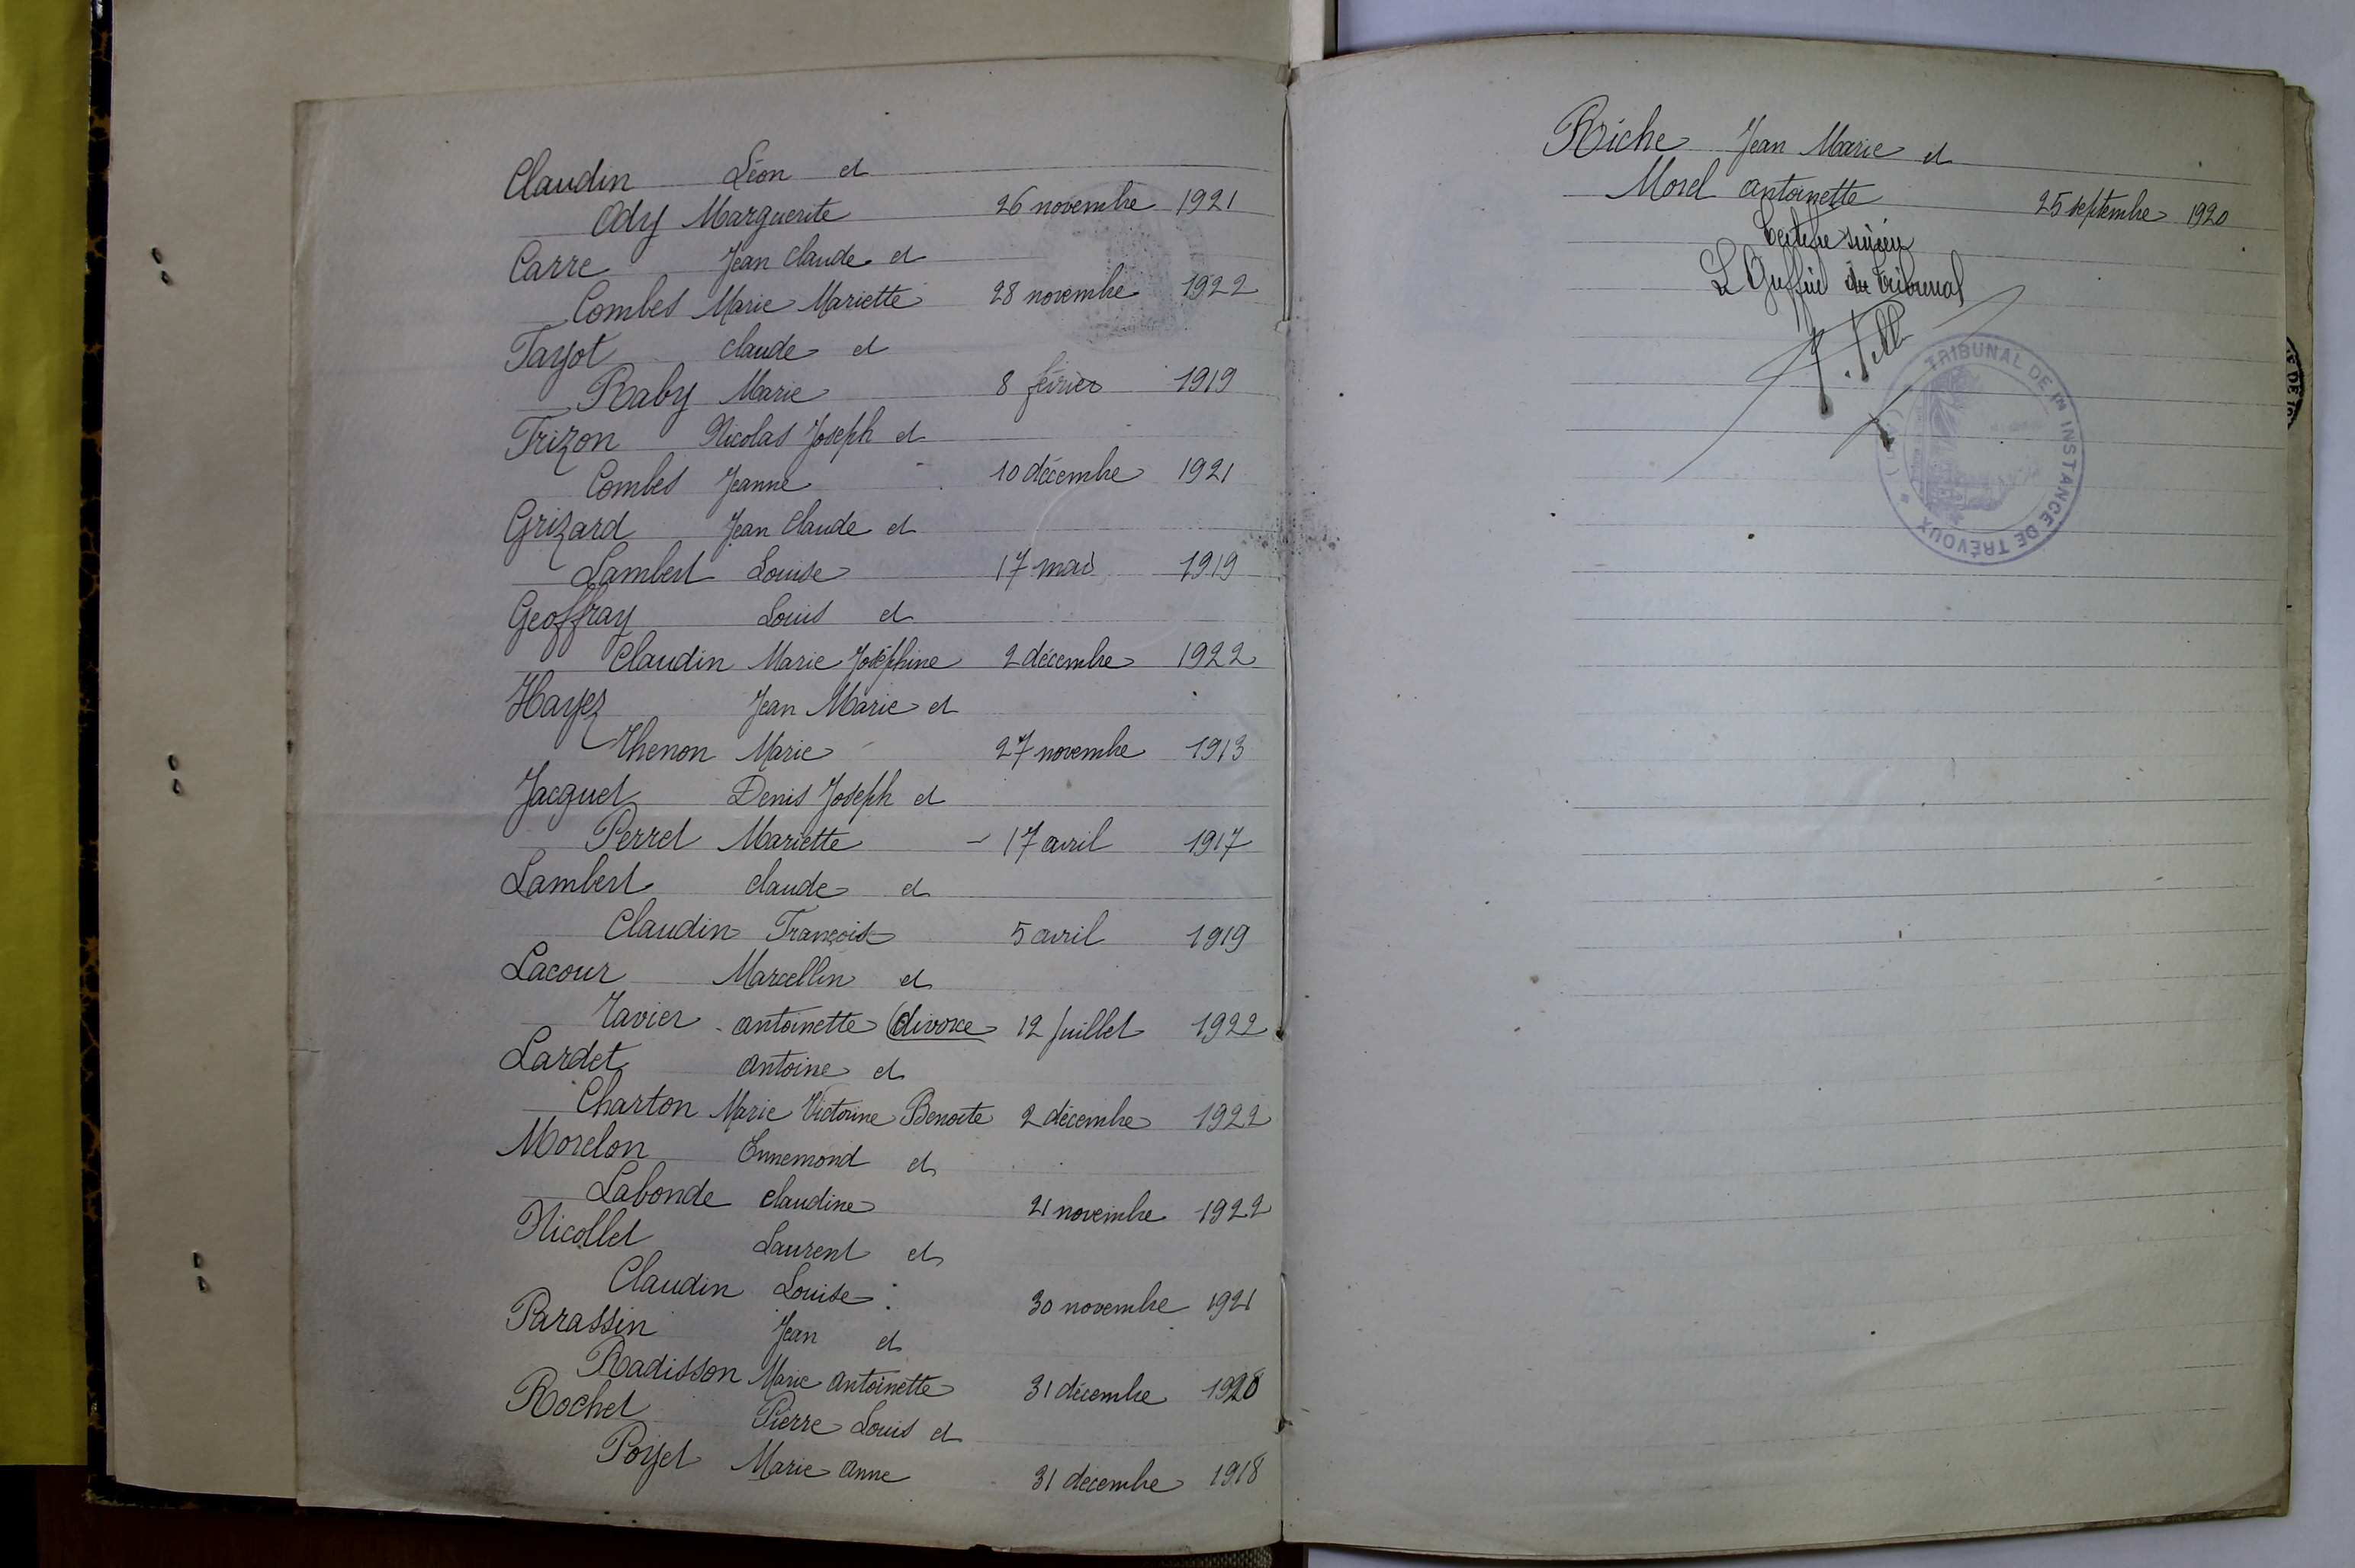 Claudin Léon et
Ody Marguerite 26 novembre 1921
Carre Jean Claude et
Combes Marie Mariette 28 novembre 1922
Fayot Claude et
Raby Marie 8 février 1919
Frizon Nicolas Joseph et
Combes Jeanne 10 décembre 1921
Grizard Jean Claude et
Lambert Louise 17 mars 1919
Geoffray Louis et
Claudin Marie Joséphine 2 décembre 1922
Hayez Jean Marie et
Thenon Marie 27 novembre 1913
Jacquet Denis Joseph et
Perret Mariette 17 avril 1917
Lambert Claude et
Claudin François 5 avril 1919
Lacour Marcellin et
Tavier Antoinette (divorce 12 Juillet 1922
Lardet Antoine et
Charton Marie Victorine Benoite 2 décembre 1922
Morelon Ennemond et
Labonde Claudine 21 novembre 1922
Nicollet Laurent et
Claudin Louise 30 novembre 1921
Parassin Jean et
Radisson Marie Antoinette 31 décembre 1920
Rochet Pierre Louis et
Poyet Marie Anne 31 décembre 1918
Riche Jean Marie et
Morel Antoinette 25 septembre 1920
Certifié sincère
Le Greffier du Tribunal
TRIBUNAL DE 1re INSTANCE DE TRÉVOUX